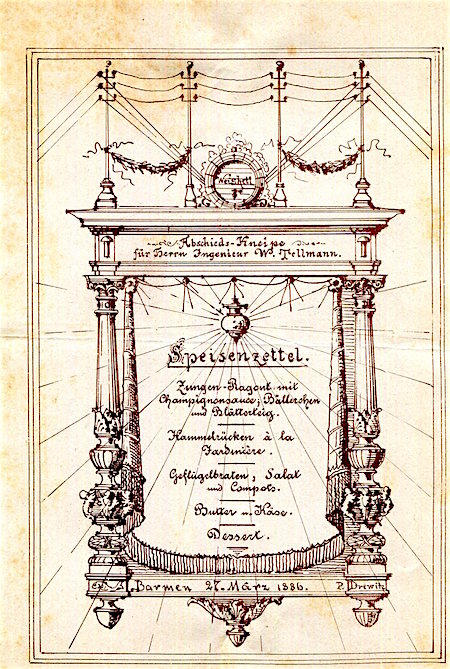 Abschieds-Kneipe
für Herrn Ingenieur W. Tellmann.
Speisenzettel.
Zungen-Ragout mit
Champignonsauce, Bällerchen
und Blätterteig.
Hammelrücken à la
Jardinière.
Geflügelbraten, Salat
und Compots.
Butter u. Käse.
Dessert.
Barmen 27. März 1886. P. Drewitz